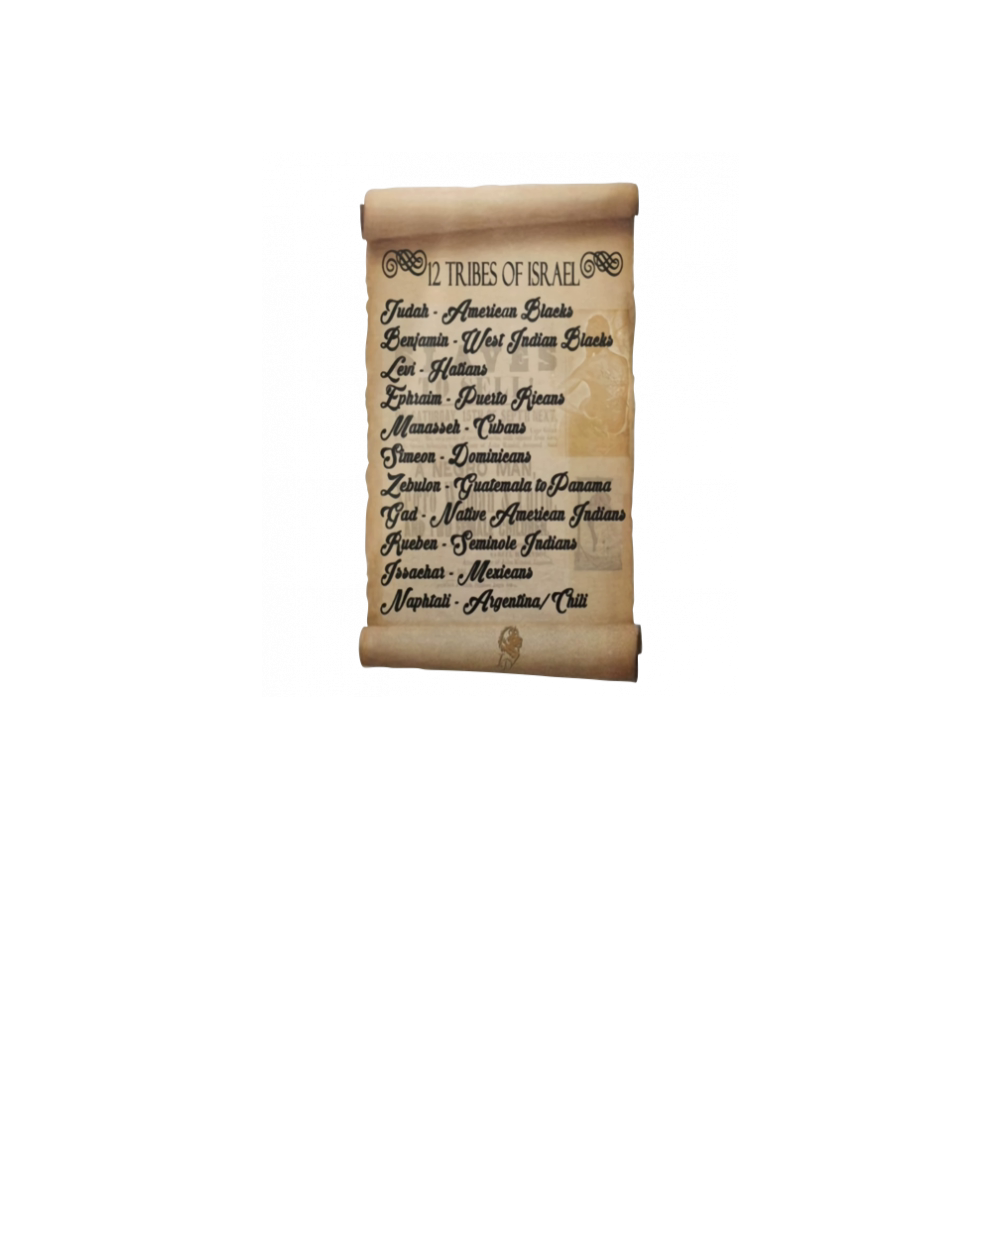 12 TRIBES OF ISRAEL
Judah - American Blacks
Benjamin - West Indian Blacks
Levi - Hatians
Ephraim - Puerto Ricans
Manasseh - Cubans
Simeon - Dominicans
Zebulon - Guatemala to Panama
Gad - Native American Indians
Rueben - Seminole Indians
Issachar - Mexicans
Naphtali - Argentina/Chili
SLAVES
A NEGRO MAN,